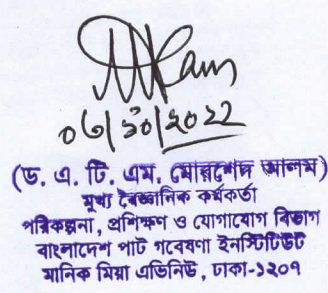 ০৬|১০|২০২২
(ড. এ. টি. এম. মোরশেদ আলম)
মুখ্য বৈজ্ঞানিক কর্মকর্তা
পরিকল্পনা, প্রশিক্ষণ ও যোগাযোগ বিভাগ
বাংলাদেশ পাট গবেষণা ইনস্টিটিউট
মানিক মিয়া এভিনিউ, ঢাকা-১২০৭